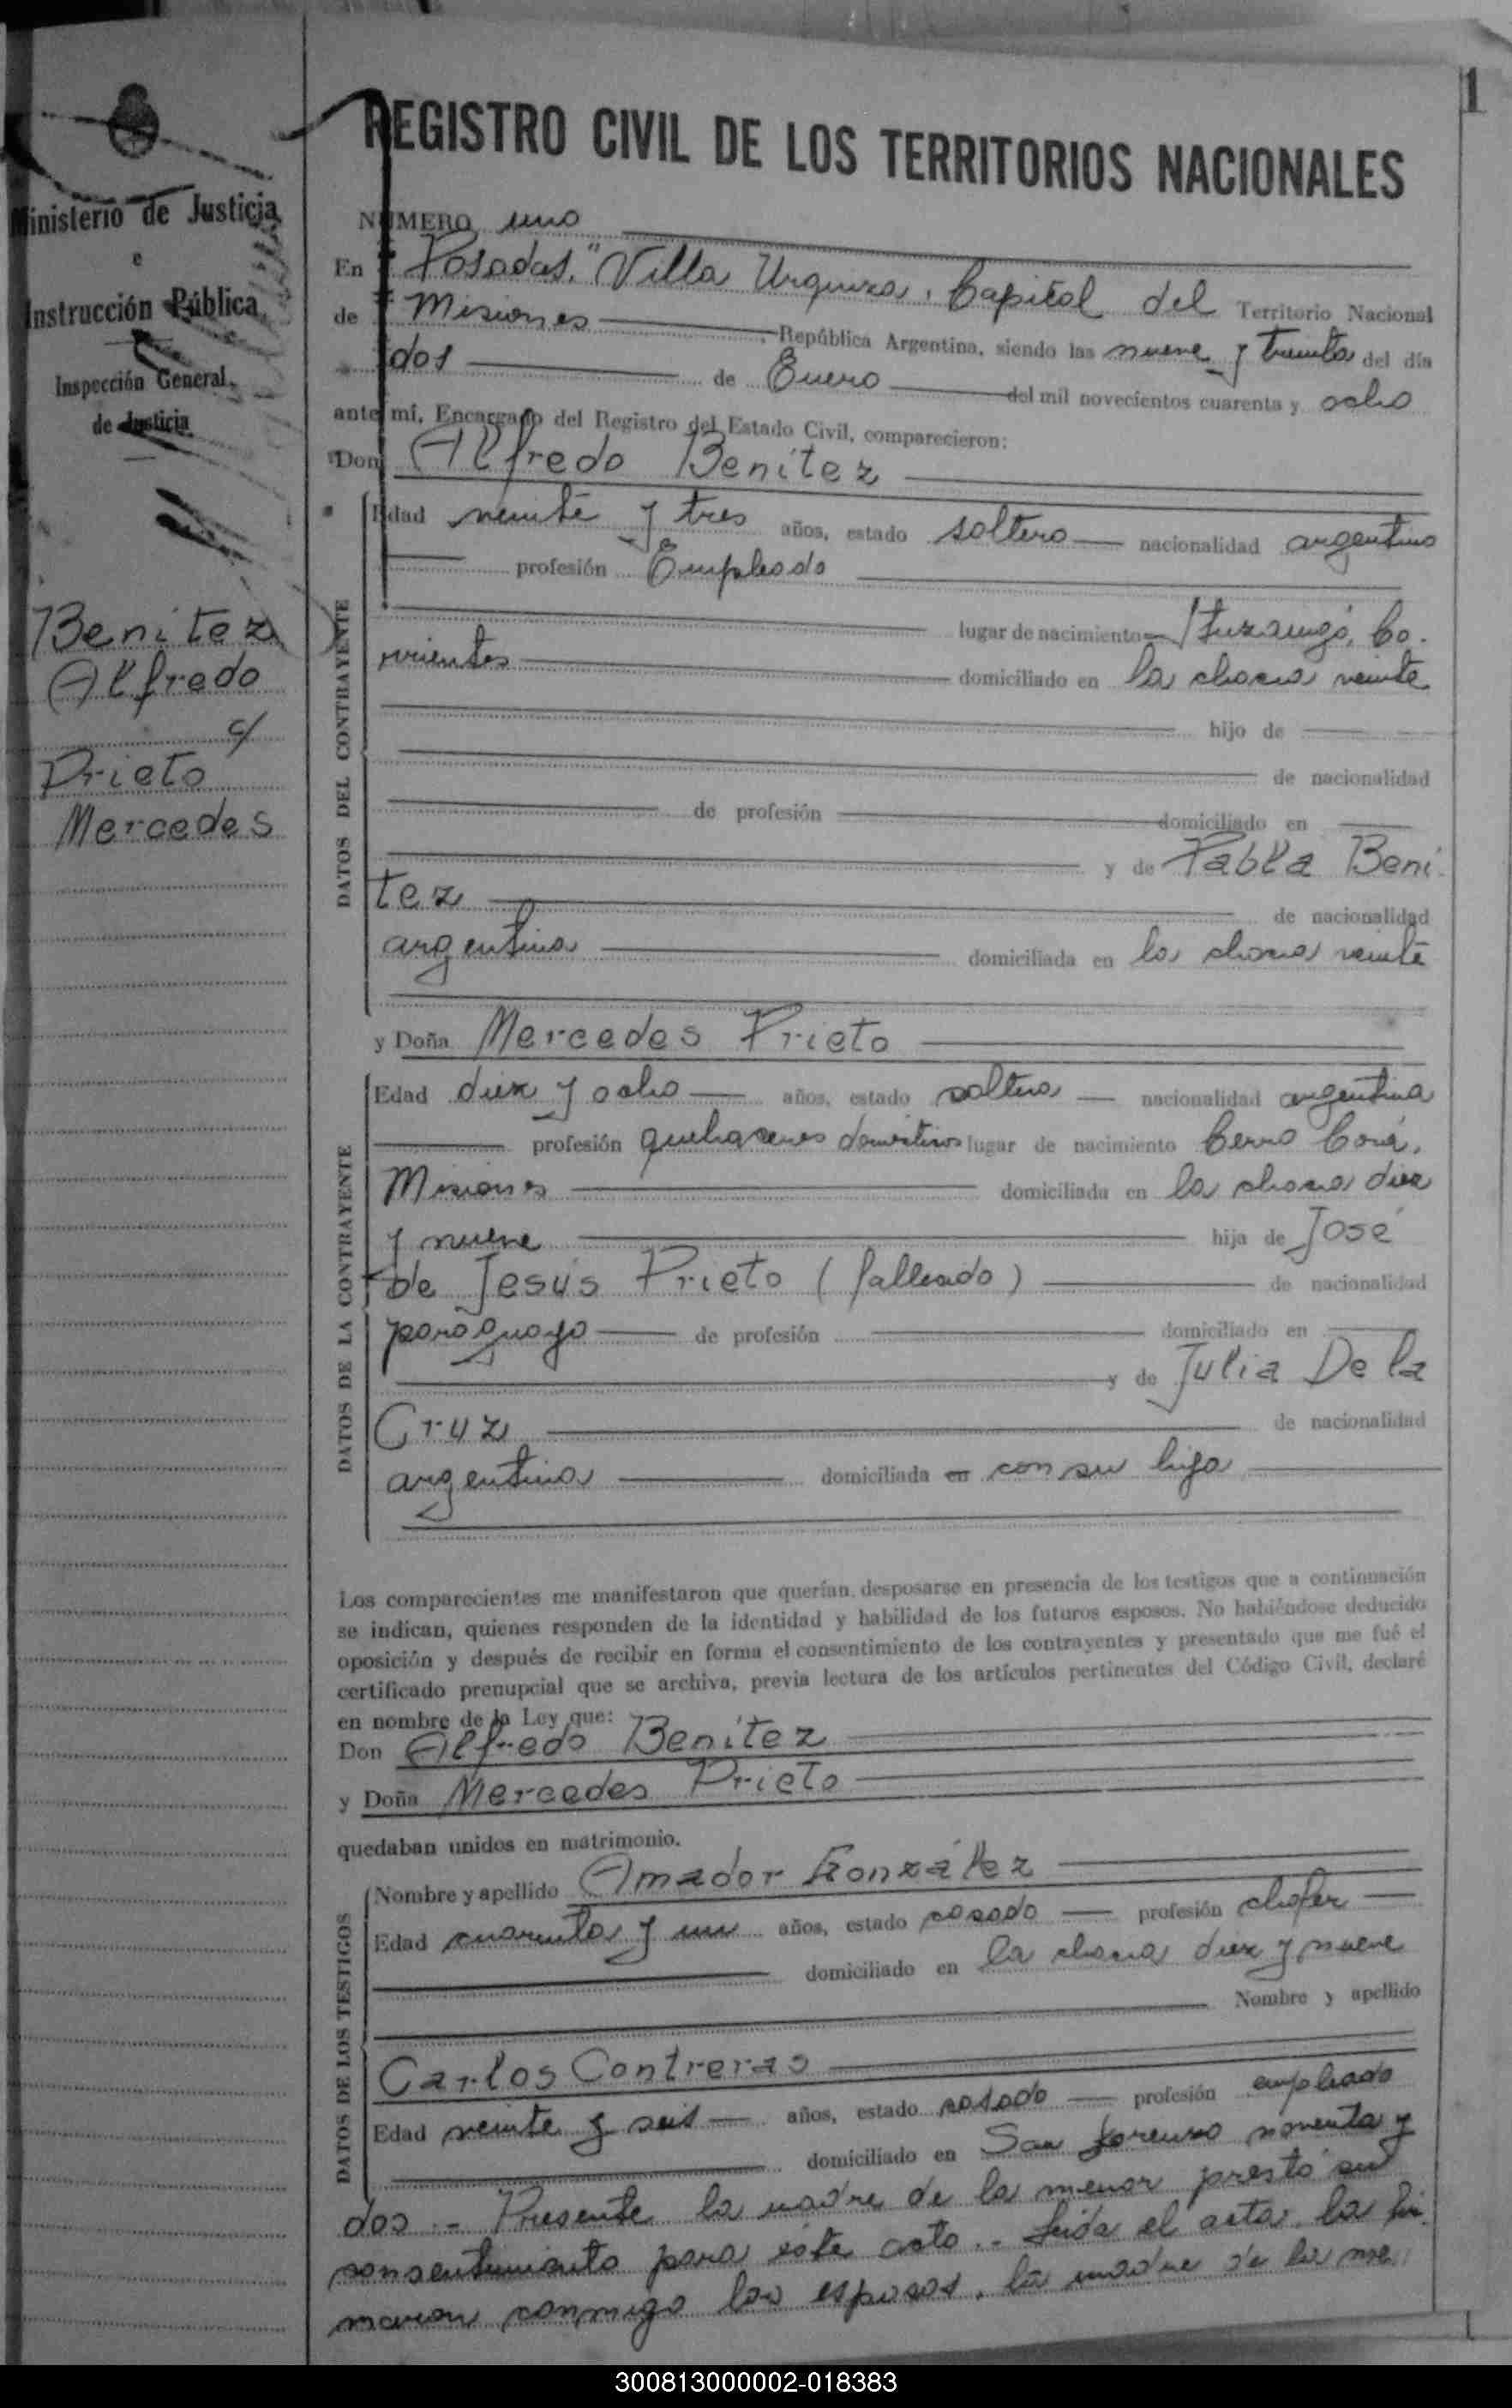 1
REGISTRO CIVIL DE LOS TERRITORIOS NACIONALES
Ministerio de Justicia
e
Instrucción Pública
Inspección General
de Justicia
Benitez
Alfredo
c/
Prieto
Mercedes
NUMERO uno
En Posadas, "Villa Urquiza, Capital del Territorio Nacional
de Misiones, República Argentina, siendo las nueve y treinta del día
dos de Enero del mil novecientos cuarenta y ocho
ante mí, Encargado del Registro del Estado Civil, comparecieron:
Don Alfredo Benítez
DATOS DEL CONTRAYENTE
Edad veinte y tres años, estado soltero nacionalidad argentino
profesión Empleado
lugar de nacimiento Ituzaingó, Co-
rrientes domiciliado en la chacra veinte
hijo de
de nacionalidad
de profesión domiciliado en
y de Pabla Bení-
tez de nacionalidad
argentina domiciliada en la chacra veinte
y Doña Mercedes Prieto
DATOS DE LA CONTRAYENTE
Edad diez y ocho años, estado soltera nacionalidad argentina
profesión quehaceres domésticos lugar de nacimiento Cerro Corá,
Misiones domiciliada en la chacra diez
y nueve hija de José
de Jesús Prieto (fallecido) de nacionalidad
paraguayo de profesión domiciliado en
y de Julia De la
Cruz de nacionalidad
argentina domiciliada en con su hija
Los comparecientes me manifestaron que querían desposarse en presencia de los testigos que a continuación
se indican, quienes responden de la identidad y habilidad de los futuros esposos. No habiéndose deducido
oposición y después de recibir en forma el consentimiento de los contrayentes y presentado que me fué el
certificado prenupcial que se archiva, previa lectura de los artículos pertinentes del Código Civil, declaré
en nombre de la Ley que:
Don Alfredo Benítez
y Doña Mercedes Prieto
quedaban unidos en matrimonio.
DATOS DE LOS TESTIGOS
Nombre y apellido Amador González
Edad cuarenta y un años, estado casado profesión chofer
domiciliado en la chacra diez y nueve
Nombre y apellido
Carlos Contreras
Edad veinte y seis años, estado casado profesión empleado
domiciliado en San Lorenzo noventa y
dos.- Presente la madre de la menor prestó su
consentimiento para éste acto.- Leida el acta, la fir-
maron conmigo los esposos, la madre de la me-
300813000002-018383